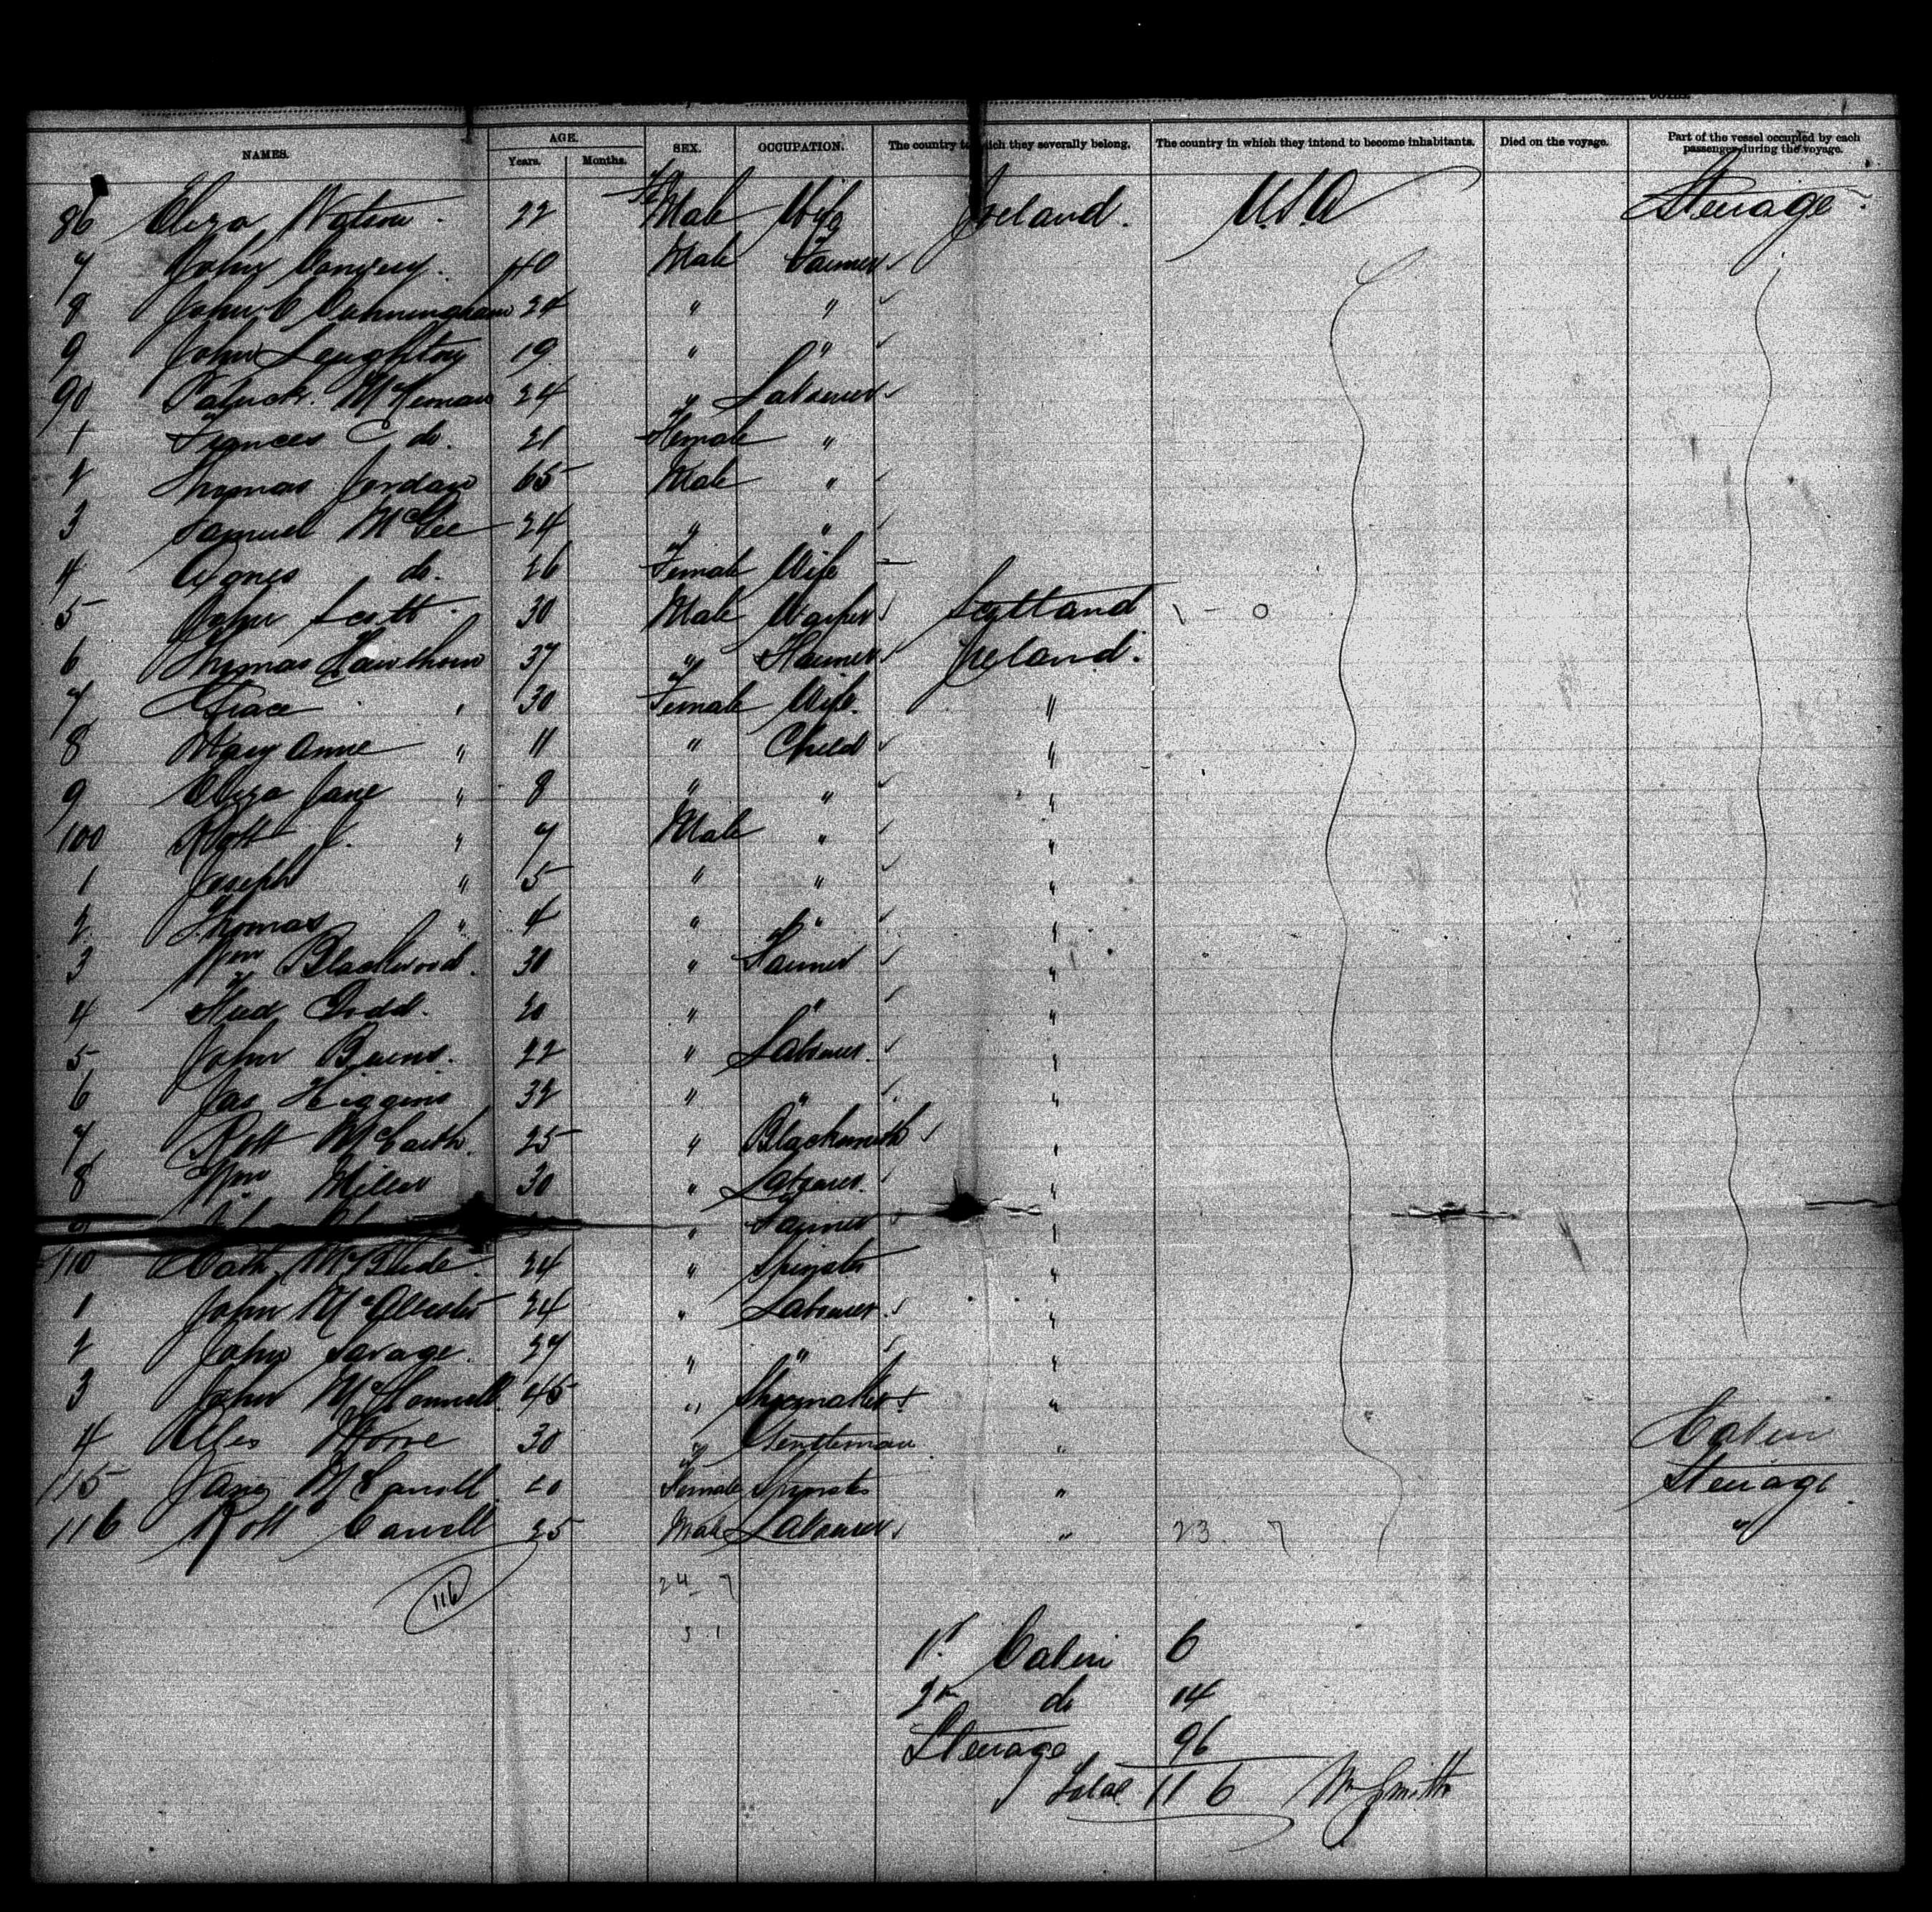 NAMES. AGE. Years. Months. SEX. OCCUPATION. The country to which they severally belong. The country in which they intend to become inhabitants. Died on the voyage. Part of the vessel occupied by each passenger during the voyage.
86 Eliza Watson 22 Female Wife Ireland. U.S.A Steerage
7 John 40 Male Farmer
8 John C Cunningham 24 " "
9 John Leughton 19 " "
90 Patrick McKernan 24 " Labourer
1 Frances C do. 21 Female "
2 Thomas Jordan 65 Male "
3 Samuel McGee 24 " "
4 Agnes do. 26 Female Wife
5 John Scott 30 Male Scotland
6 Thomas Hawthorn 37 " Farmer Ireland.
7 Grace " 30 Female Wife "
8 Mary Anne " 11 " Child "
9 Eliza Jane " 8 " " "
100 Robt J. " 7 Male " "
1 Joseph " 5 " " "
2 Thomas " 4 " " "
3 Wm Blackwood 30 " Farmer "
4 Dodd 20 " " "
5 John Burns 22 " Labourer "
6 Jas Higgins 32 " " "
7 Robt 25 " Blacksmith "
8 Wm Miller 30 " Labourer "
" Farmer "
110 Cath McBride 24 " Spinster "
1 John McAllester 24 " Labourer "
2 John Savage 27 " " "
3 John McConnell 45 " Shoemaker "
4 Alex Moore 30 " Gentleman " Cabin
115 Jane McCarroll 20 Female Spinster " Steerage
116 Robt Carroll 25 Male Labourer " 23 7 "
116 24 7
3 1
1st Cabin 6
2nd do 14
Steerage 96
Total 116 Wm Smith